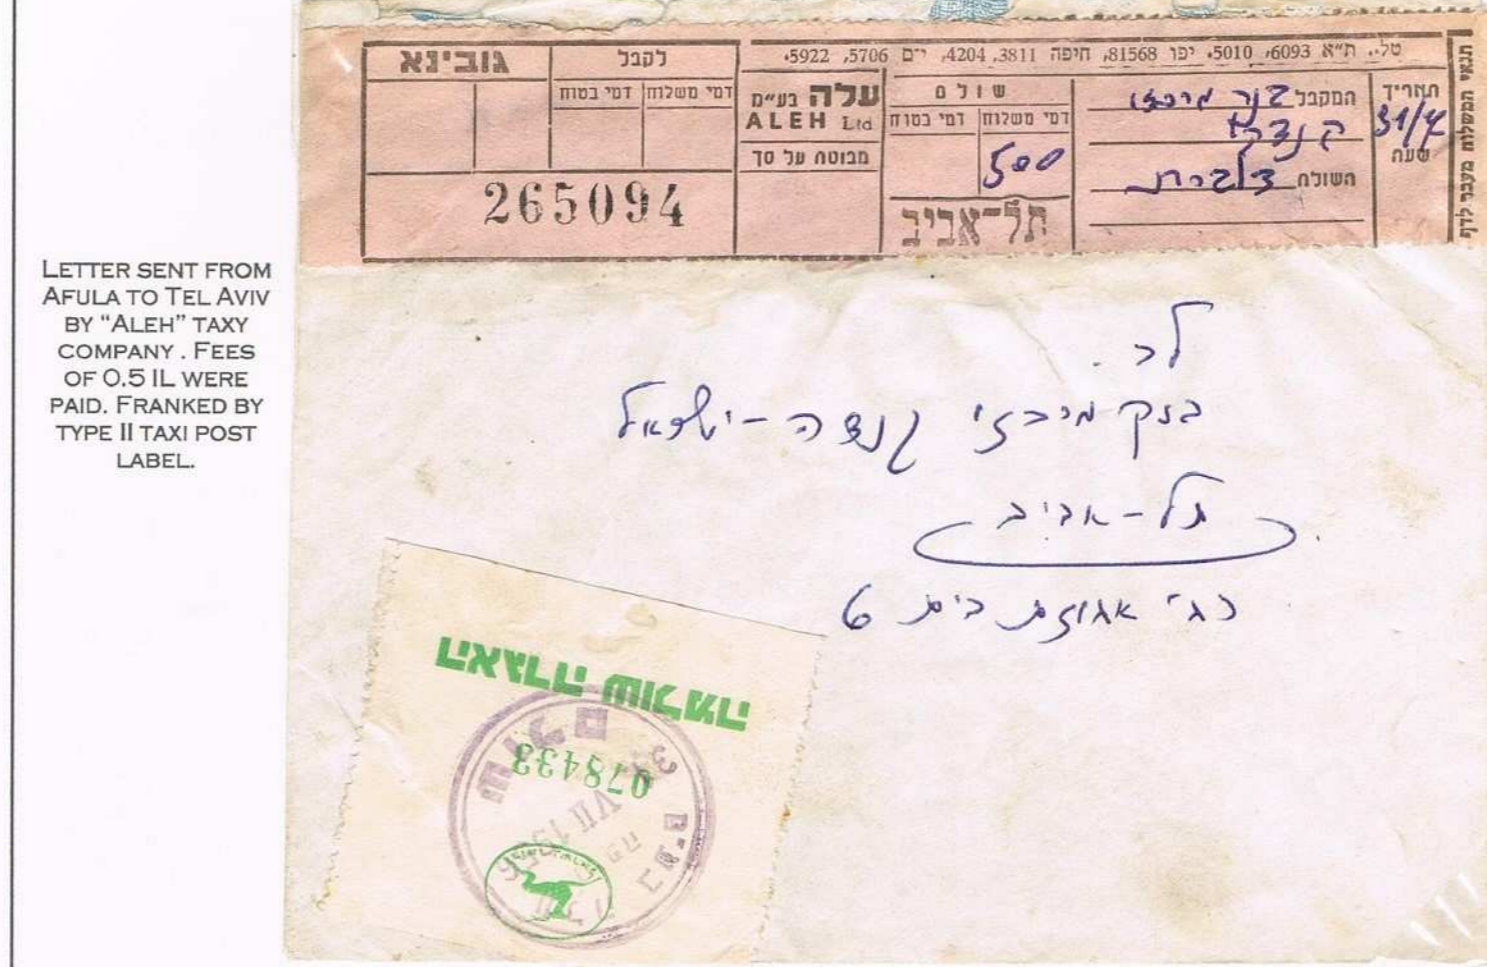 LETTER SENT FROM
AFULA TO TEL AVIV
BY “ALEH” TAXY
COMPANY . FEES
OF 0.5 IL WERE
PAID. FRANKED BY
TYPE II TAXI POST
LABEL.
טל.. ת"א 6093, 5010. יפו 81568, חיפה 3811, 4204, י־ם 5706, 5922.
תנאי המשלוח מעבר לדף
תאריך
31/7
שעה
המקבל בנק מרכזי
קנדה
השולח
שולם
דמי משלוח דמי בטוח
500
תל־אביב
עלה בע"מ
ALEH Ltd
מבוטח על סך
לקבל
דמי משלוח דמי בטוח
גובינא
265094
לכ.
בנק מרכזי קנדה - ישראל
תל-אביב
רח' אחוזת בית 6
אגרה שולמה
078433
שולם
VII